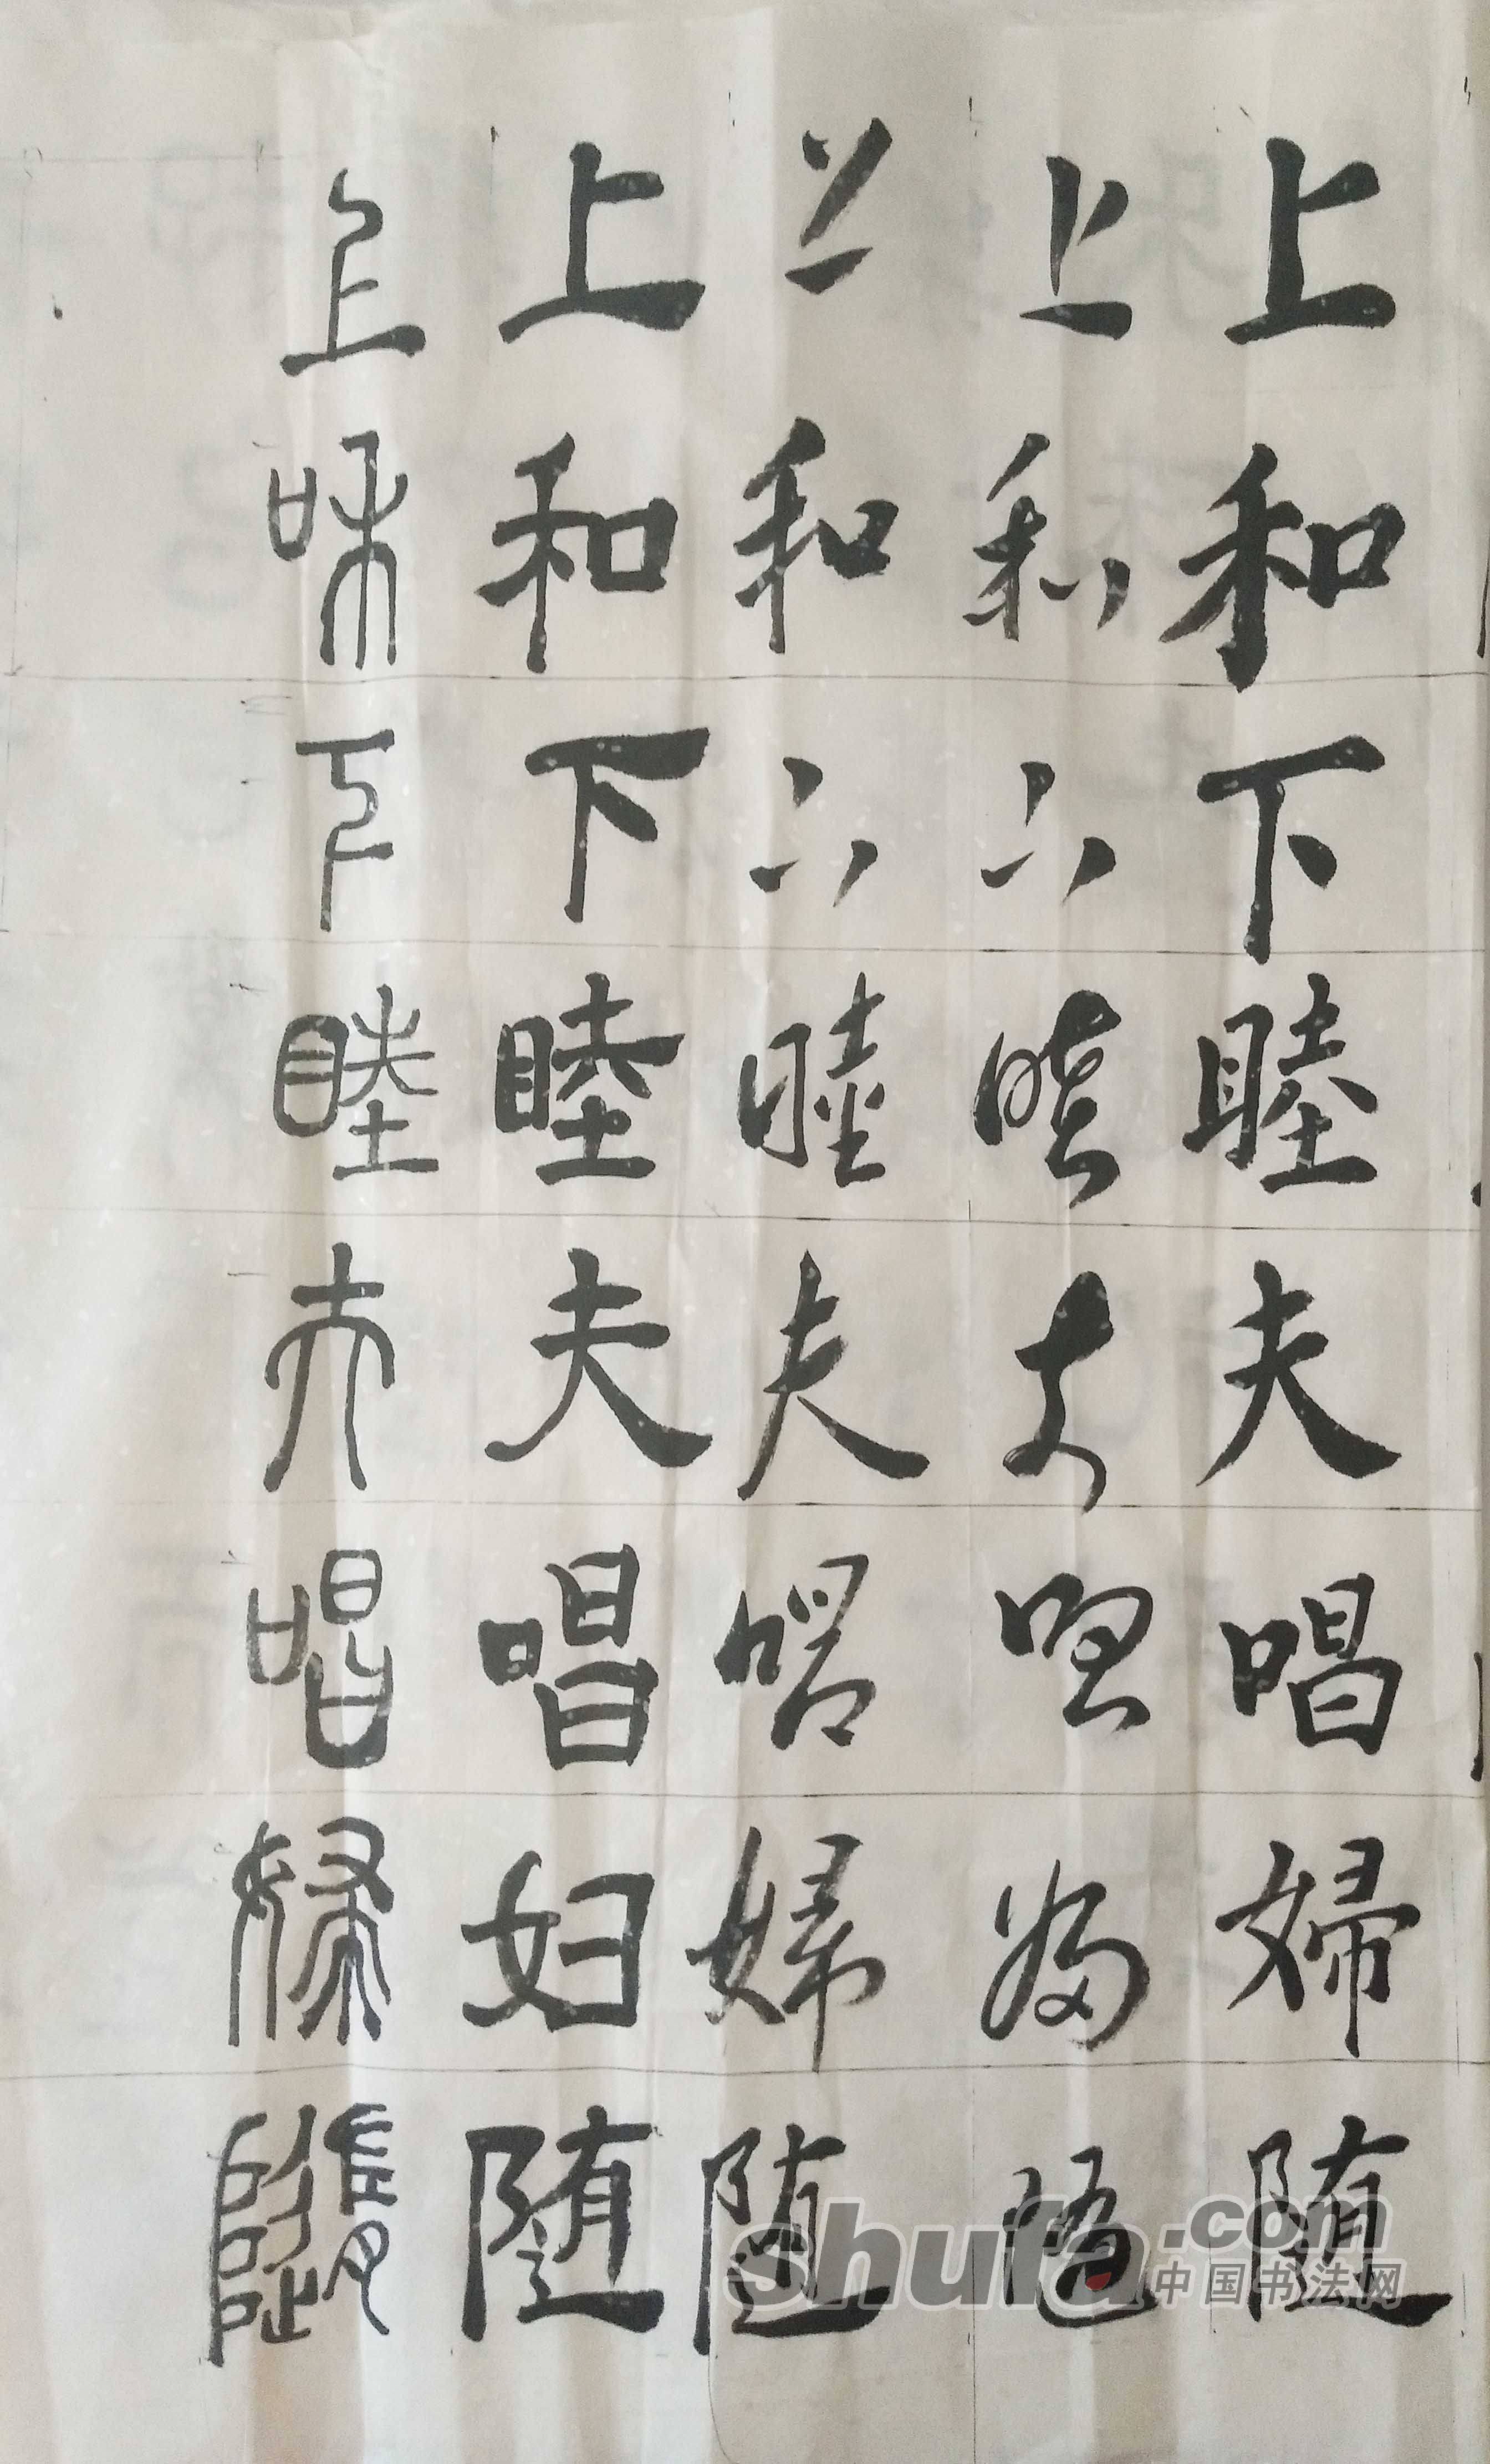 上和下睦夫唱婦随
上和下睦夫唱婦随
上和下睦夫唱婦随
上和下睦夫唱妇随
上和下睦夫唱婦隨
shufa.com
中国书法网